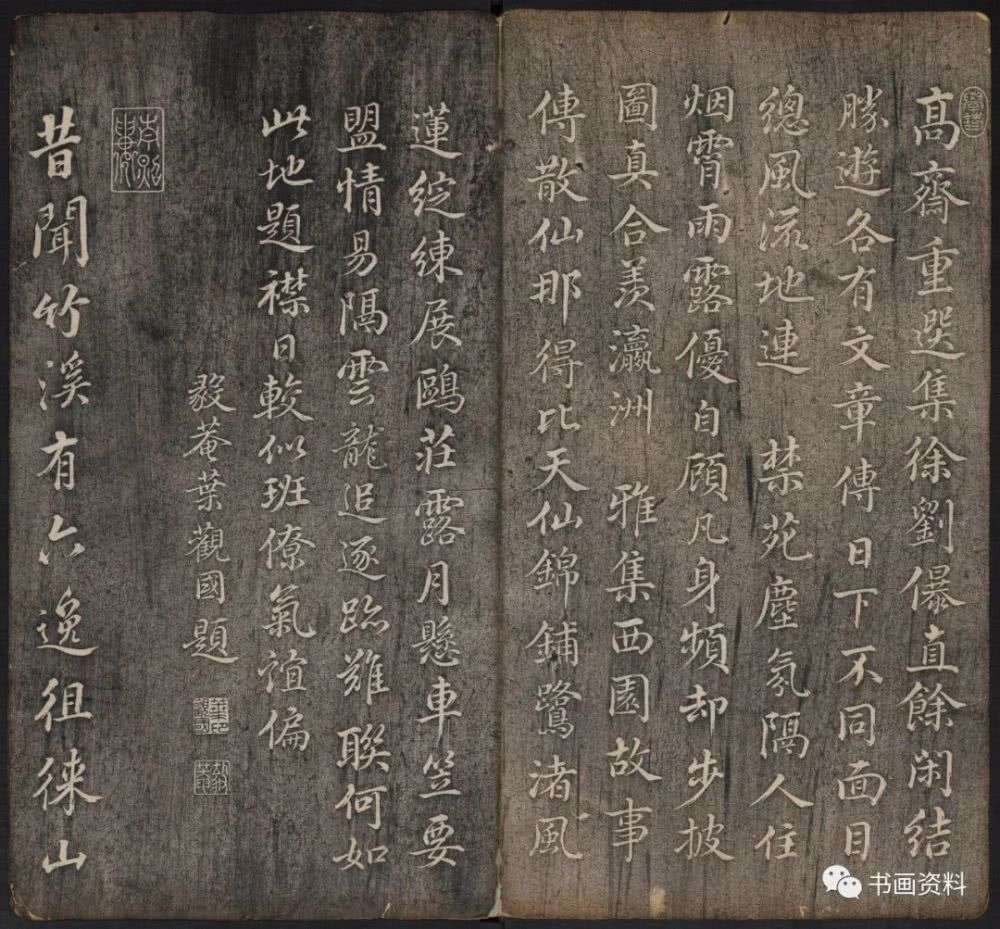 高齋重選集徐劉儤直餘閑結
勝遊各有文章傳日下不同面目
總風流地連禁苑塵氛隔人住
烟霄雨露優自顧凡身頻却步披
圖真合羨瀛洲雅集西園故事
傳散仙那得比天仙錦鋪鷺渚風
蓮綻練展鷗莊露月懸車笠要
盟情易隔雲龍追逐跡難聯何如
此地題襟日較似班僚氣誼偏
毅菴葉觀國題
昔聞竹溪有六逸徂徠山
书画资料